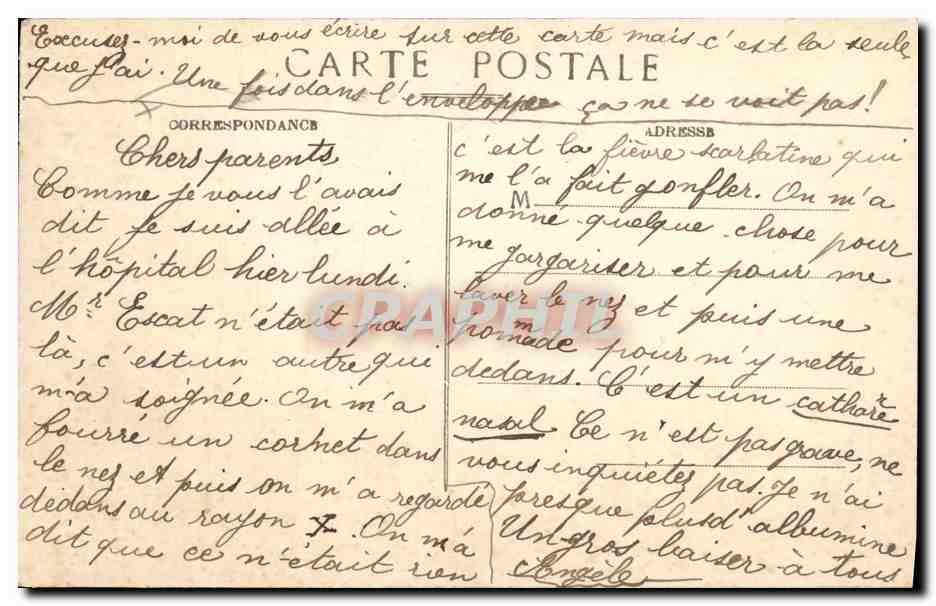 Excusez-moi de vous écrire sur cette carte mais c'est la seule
que j'ai. Une fois dans l'enveloppe ça ne se voit pas!
CARTE POSTALE
CORRESPONDANCE
Chers parents
Comme je vous l'avais
dit je suis allée à
l'hôpital hier lundi.
Mr Escat n'était pas
là, c'est un autre qui
m'a soignée. On m'a
fourré un cornet dans
le nez et puis on m'a regardé
dedans au rayon X. On m'a
dit que ce n'était rien
ADRESSE
c'est la fièvre scarlatine qui
me l'a fait gonfler. On m'a
M
donné quelque chose pour
me gargariser et pour me
laver le nez et puis une
pommade pour m'y mettre
dedans. C'est un catharre
nasal Ce n'est pas grave, ne
vous inquiétez pas. Je n'ai
presque plus d'albumine
Un gros baiser à tous
Angèle
CPAPHIL